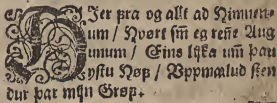 Jer þra og allt ad Himnen-
um / Hvørt sm̃ eg reñe Aug
unum / Eins lijka um̃ þau
ystu Nøß / Vppmælud sten
dur þar mijn Grøß.